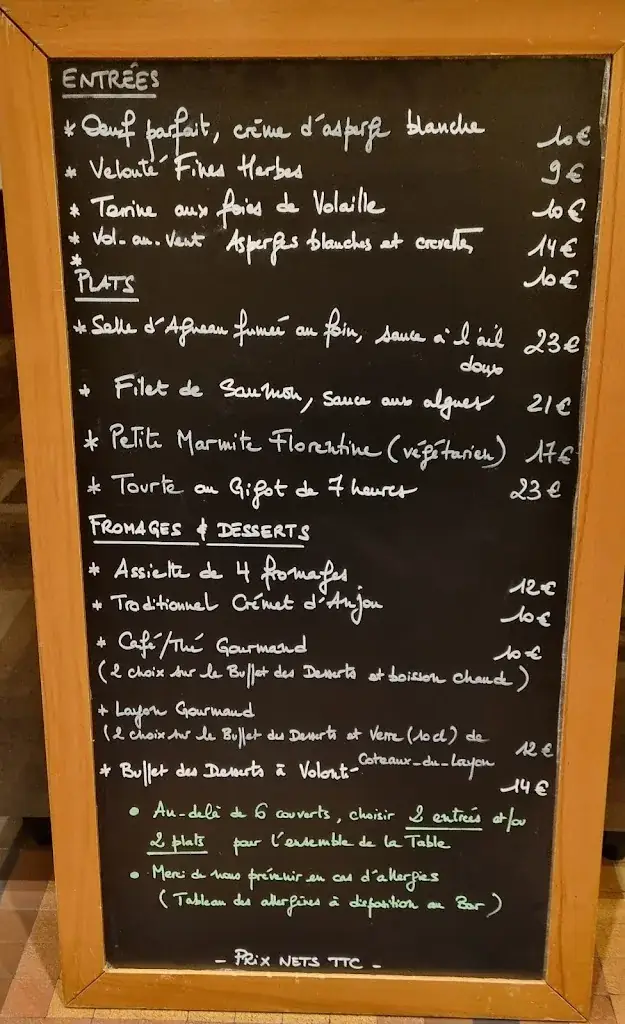 ENTRÉES
* Oeuf parfait, crème d'asperge blanche 10€
* Velouté Fines Herbes 9€
* Terrine aux foies de Volaille 10€
* Vol-au-Vent Asperges blanches et crevettes 14€
* 10€
PLATS
* Selle d'Agneau fumée au foin, sauce à l'ail 23€
doux
* Filet de Saumon, sauce aux algues 21€
* Petite Marmite Florentine (végétarien) 17€
* Tourte au Gigot de 7 heures 23€
FROMAGES & DESSERTS
* Assiette de 4 fromages 12€
* Traditionnel Crémet d'Anjou 10€
* Café/Thé Gourmand 10€
(2 choix sur le Buffet des Desserts et boisson chaude)
* Layon Gourmand
(2 choix sur le Buffet des Desserts et Verre (10cl) de
Coteaux-du-Layon 12€
* Buffet des Desserts à Volont- 14€
• Au-delà de 6 couverts, choisir 2 entrées et/ou
2 plats pour l'ensemble de la Table
• Merci de nous prévenir en cas d'allergies
(Tableau des allergènes à disposition au Bar)
- PRIX NETS TTC -